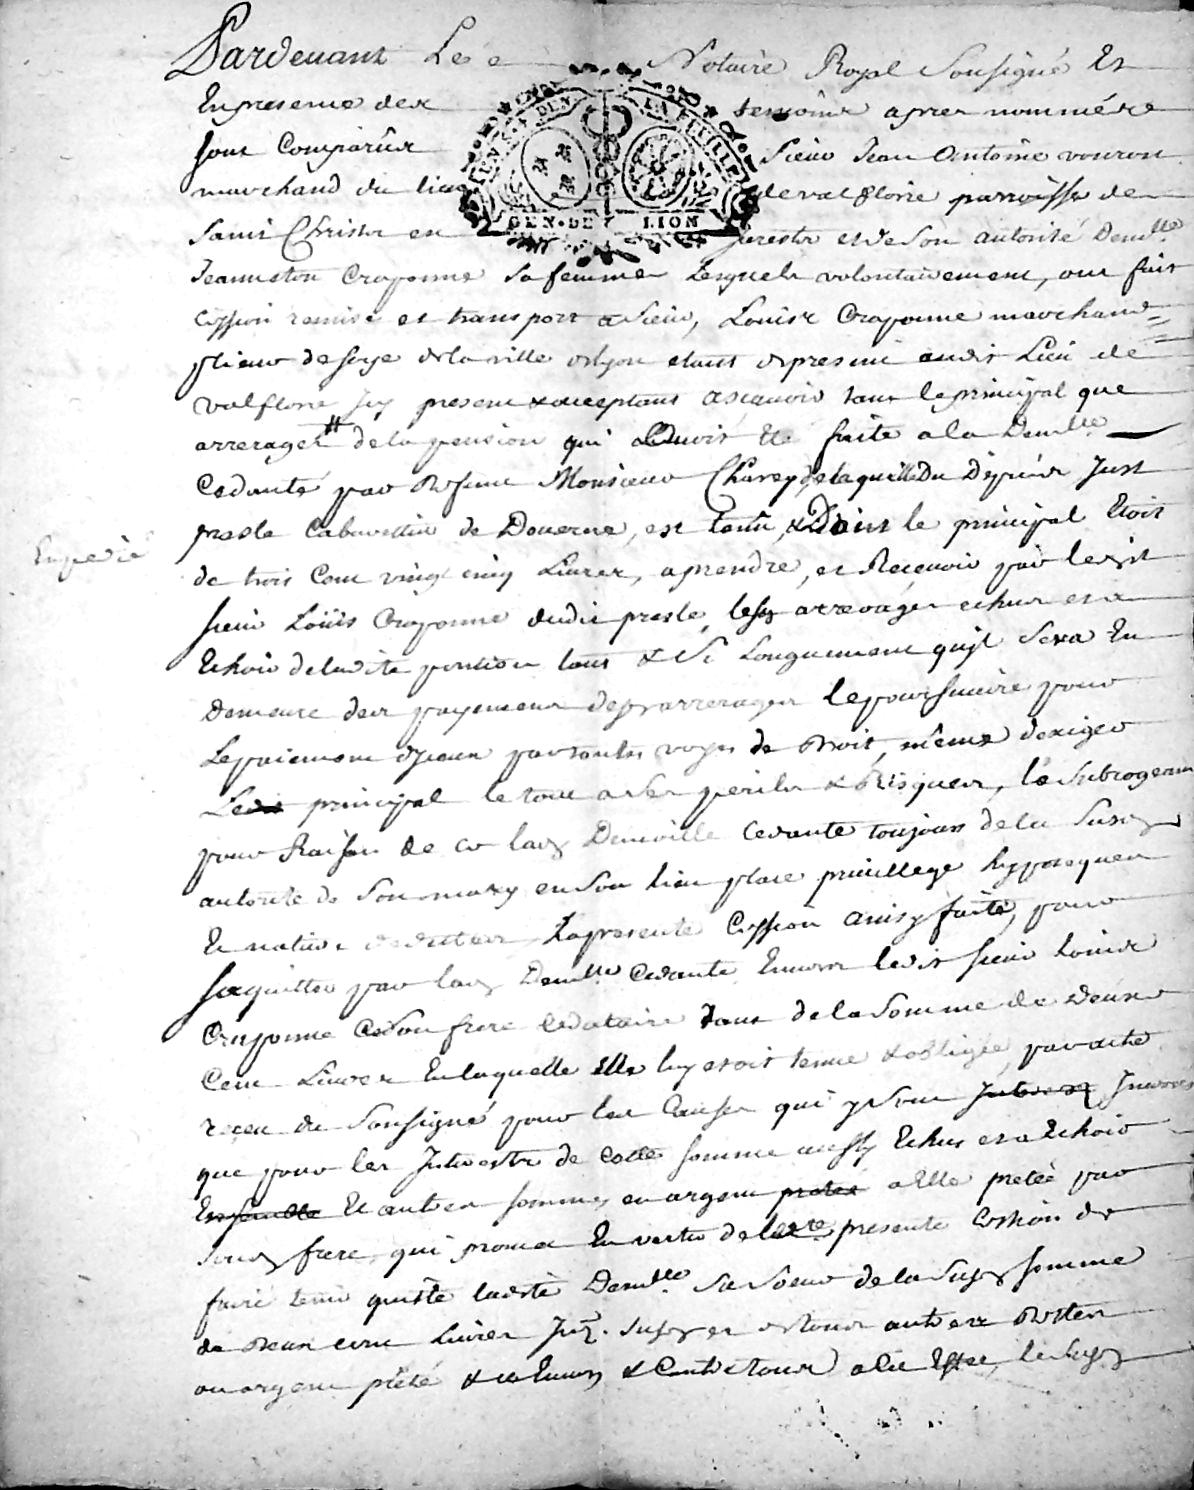 Pardevant Le Notaire Royal Sousigné Et
En presence des temoins apres nommées
sont Comparûs Sieur Jean Antoine vouron
marchand du lieu de valflorie parroisse de
Saint Christ en forestz et de son autorité Demlle
Jeanneton Crayonne sa femme Lesquels volontairement, ont fait
Cession remise et transport a Sieur, Louis Crayonne marchand
plieur de soye de la ville de lyon etant de present audit Lieu de
valflorie Icy present & acceptant ascavoir tant le principal que
arrerages de la pension qui Devoit Etre faite a la Demlle
Cedante par Monsieur Chavey de laquelle Du Just
presle Cabarettier de Douerne, est tenu, & Dont le principal Etoit
Expedié
de trois Cent vingt cinq Livres, a prendre, et Recevoir par ledit
sieur Loüis Crayonne dudit presle, lesd arrerages echus et a
Echoir de ladite pention tant & Si Longuement quil Sera En
Demeure des payement desd arrerages le poursuivre pour
Le paiement diceux par toutes voyes de Droit, même dexiger
Le principal le tout a ses perils & Risques, le Subrogeant
pour Raison de ce lad Demoiselle Cedante toujours de la Susd
autorité de Son mary en Son lieu place privillege hypoteques
Et nature La presente Cession ainsy faite, pour
sacquitter par lad Demlle Cedante Envers ledit sieur Louis
Crayonne Son frere Cedataire tant de la Somme de Deux
Cent Livres En laquelle Elle luy etoit tenue & obligée, par acte
reçeu du Sousigné pour les Causes qui y sont
que pour les Interestz de Cette somme aussy Echus et a Echoir
Ensemble Et autres sommes en argent pretée a Elle pretée par
Sond frere, qui promet En vertu de la presente Cession de
faire tenir quitte ladite Demlle Sa Soeur de la Susd somme
de Deux cent Livres Intz. Susd et de toutes autres Dettes
ou argent prêté & Envers & Contre tous a cet Effet, le Susd
GEN. DE LION